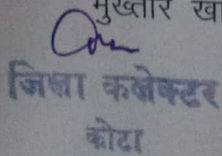 मुख्तार खा
जिला कलेक्टर
कोटा